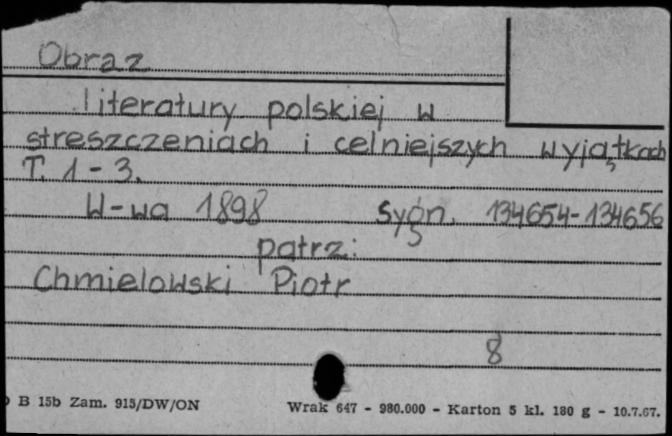 Obraz
literatury polskiej w
streszczeniach i celniejszych wyjątkach
T. 1-3.
W-wa 1898 Sygn. 134654-134656
patrz:
Chmielowski Piotr
8
B 15b Zam. 915/DW/ON Wrak 647 - 980.000 - Karton 5 kl. 180 g - 10.7.67.